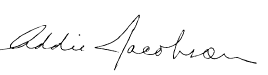 Addie Jacobson